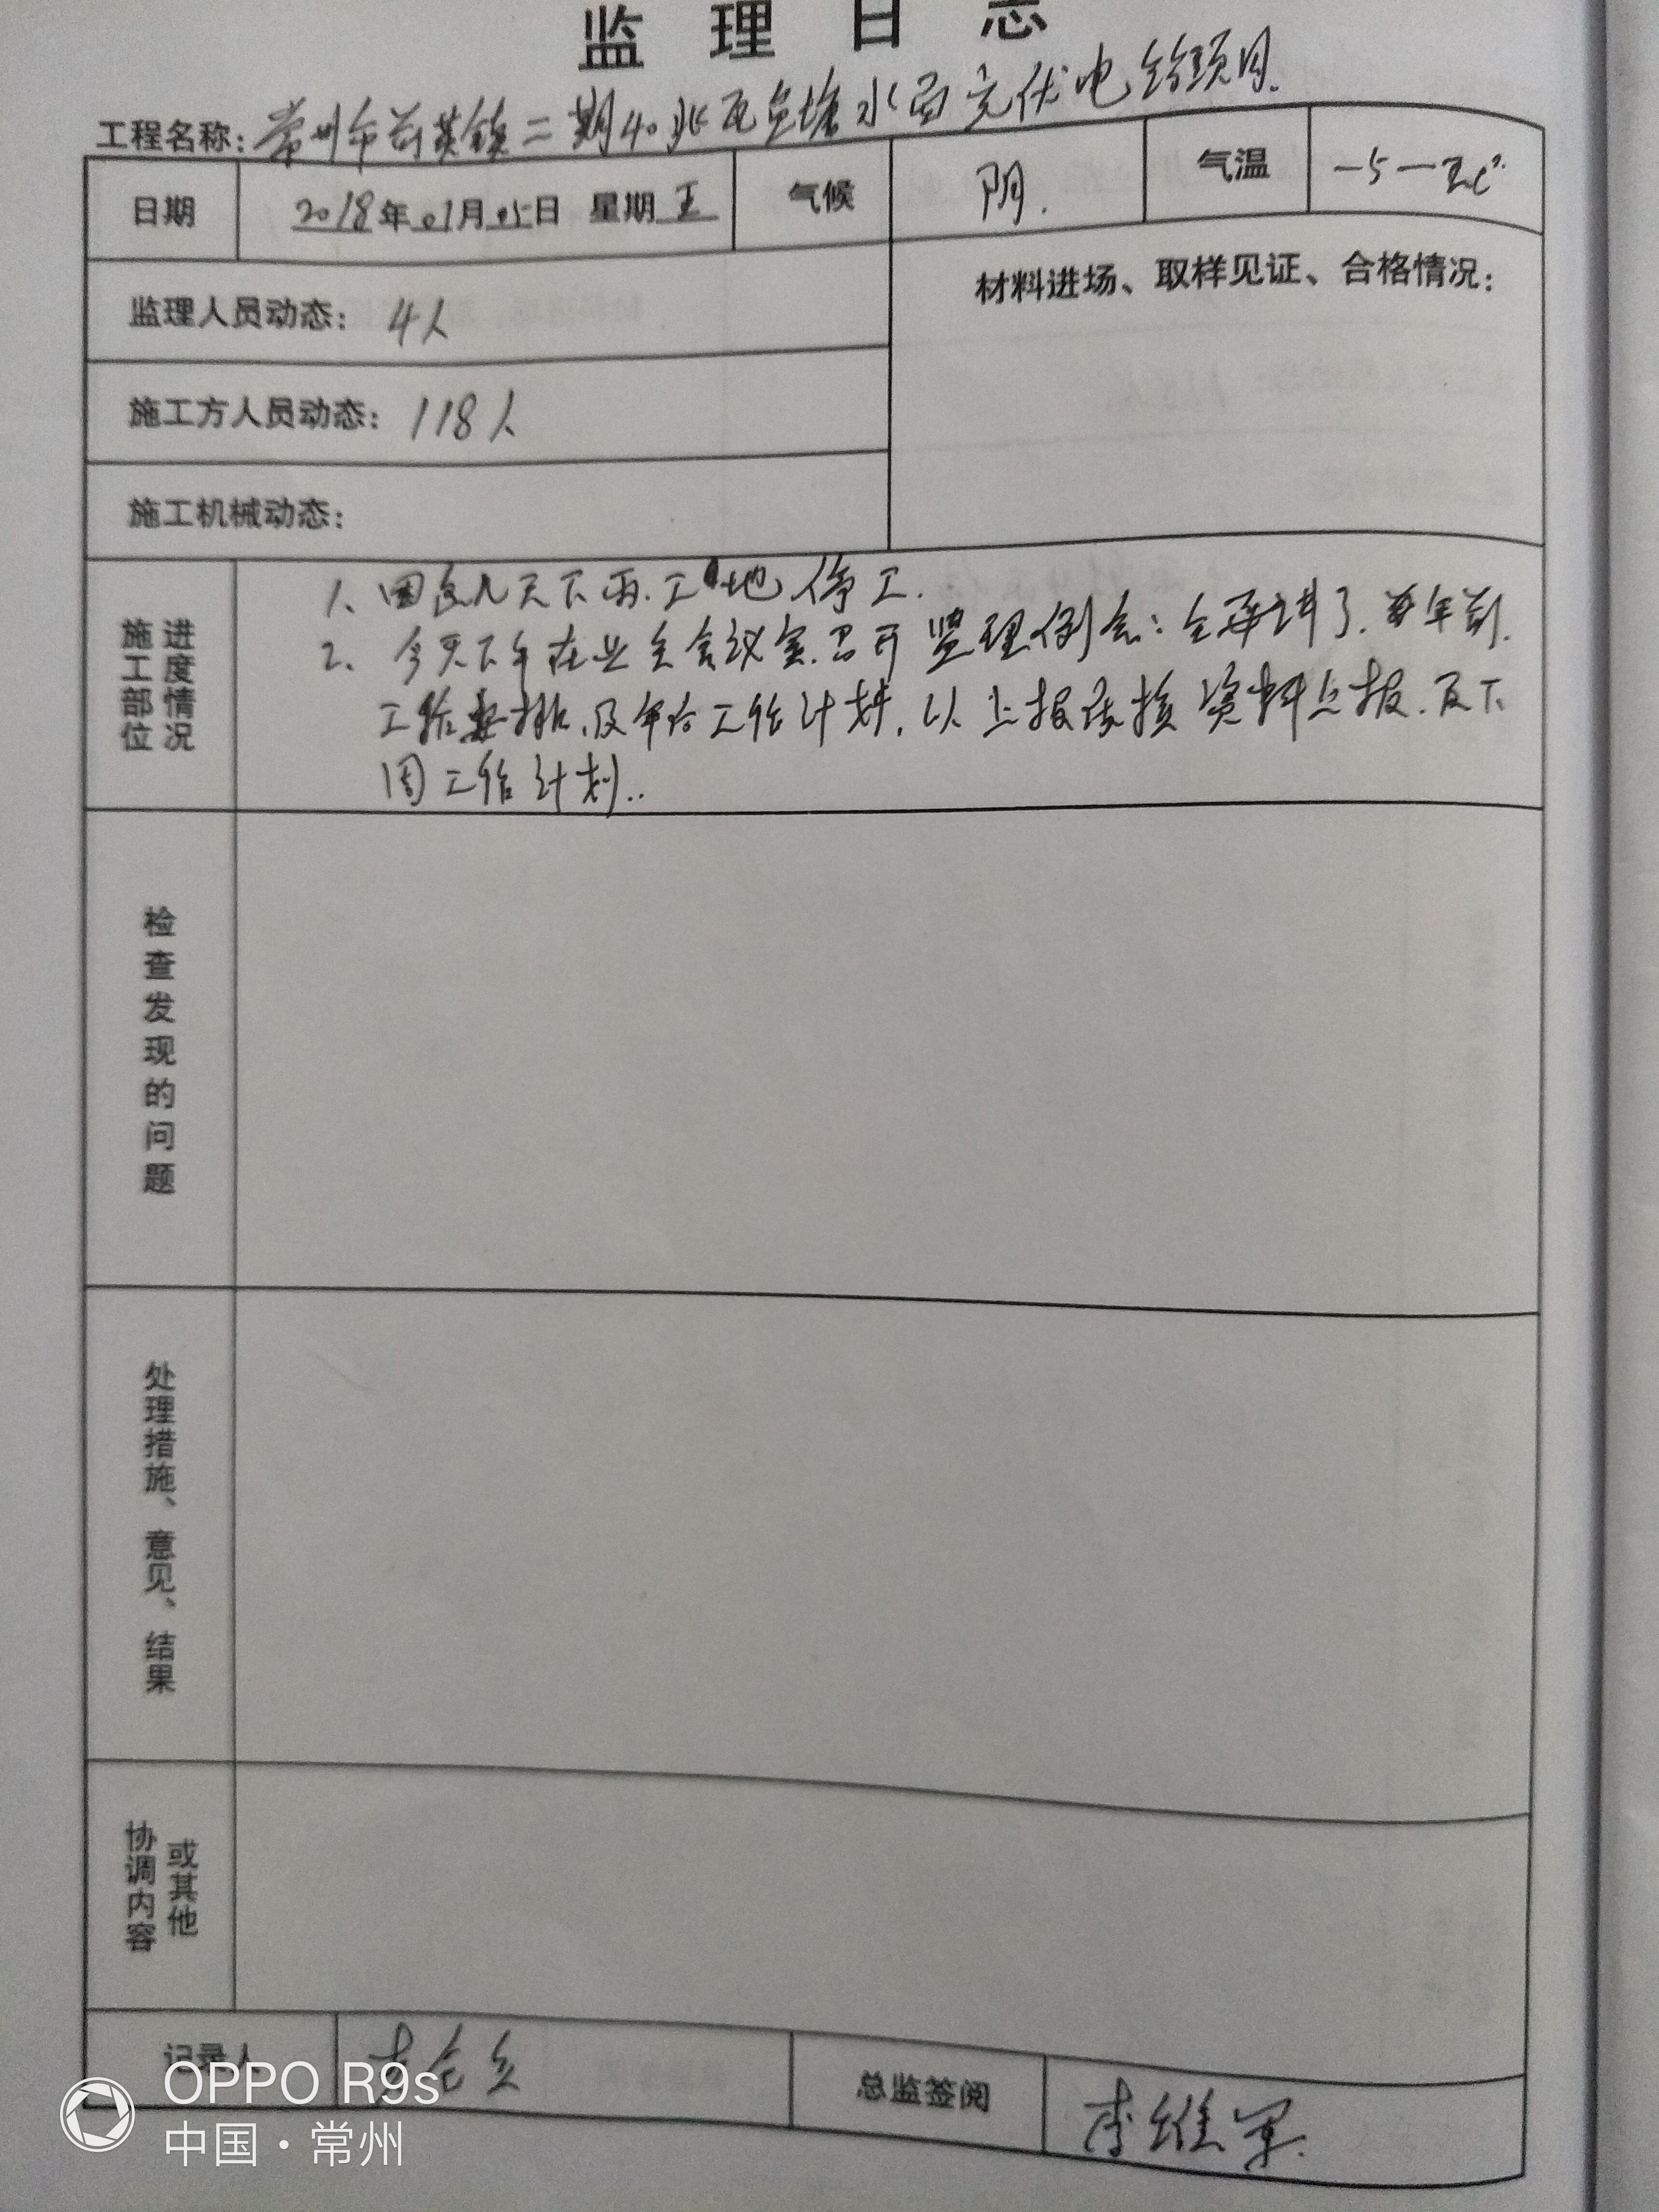 监理日志
工程名称：常州市前黄镇二期40兆瓦鱼塘水面光伏电站项目.
日期 2018年01月05日 星期五 气候 阴. 气温 -5—
监理人员动态：4人
材料进场、取样见证、合格情况：
施工方人员动态：118人
施工机械动态：
施工部位
进度情况
1、因这几天下雨.工地停工.
2、今天下午在业主会议室.召开监理例会：讲了.年前.
工作安排.及年后工作计划.以上报资料上报.及下
周工作计划..
检查发现的问题
处理措施、意见、结果
协调内容
或其他
记录人
总监签阅 李维军.
OPPO R9s
中国·常州